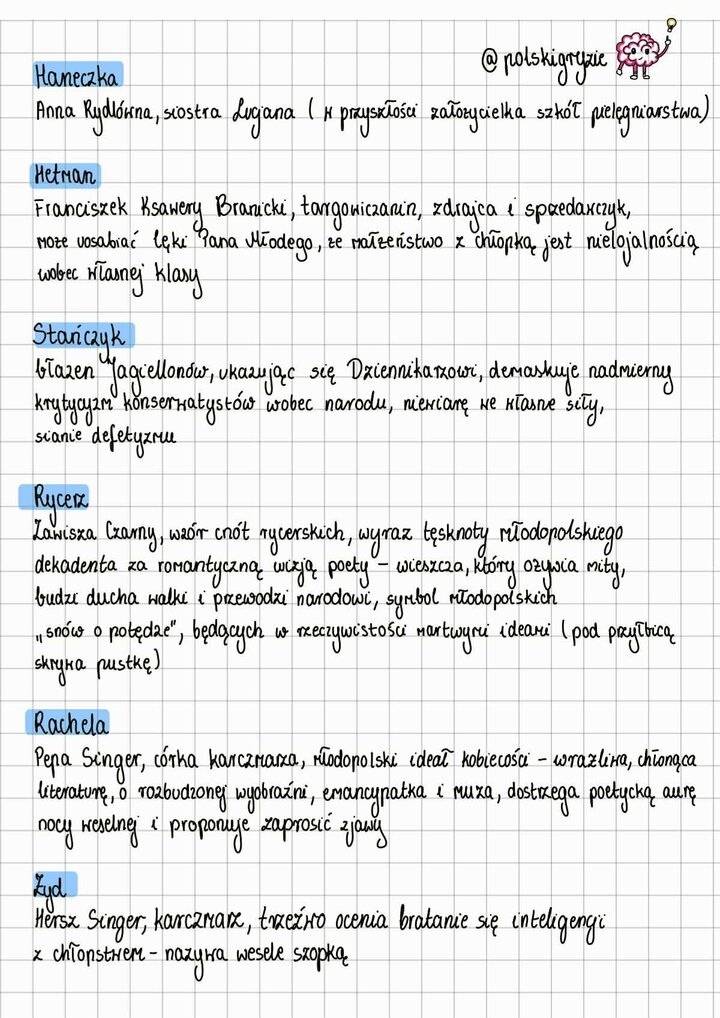 @polskigryzie
Haneczka
Anna Rydlówna, siostra Lucjana (w przyszłości założycielka szkół pielęgniarstwa)
Hetman
Franciszek Ksawery Branicki, targowiczanin, zdrajca i sprzedawczyk,
może uosabiać lęki Pana Młodego, że małżeństwo z chłopką jest nielojalnością
wobec własnej klasy
Stańczyk
błazen Jagiellonów, ukazując się Dziennikarzowi, demaskuje nadmierny
krytycyzm konserwatystów wobec narodu, niewiarę we własne siły,
sianie defetyzmu
Rycerz
Zawisza Czarny, wzór cnót rycerskich, wyraz tęsknoty młodopolskiego
dekadenta za romantyczną wizją poety - wieszcza, który ożywia mity,
budzi ducha walki i przewodzi narodowi, symbol młodopolskich
„snów o potędze", będących w rzeczywistości martwymi ideami (pod przyłbicą
skrywa pustkę)
Rachela
Pepa Singer, córka karczmarza, młodopolski ideał kobiecości - wrażliwa, chłonąca
literaturę, o rozbudzonej wyobraźni, emancypatka i muza, dostrzega poetycką aurę
nocy weselnej i proponuje zaprosić zjawy
Żyd
Hersz Singer, karczmarz, trzeźwo ocenia bratanie się inteligengi
z chłopstwem - nazywa wesele szopką